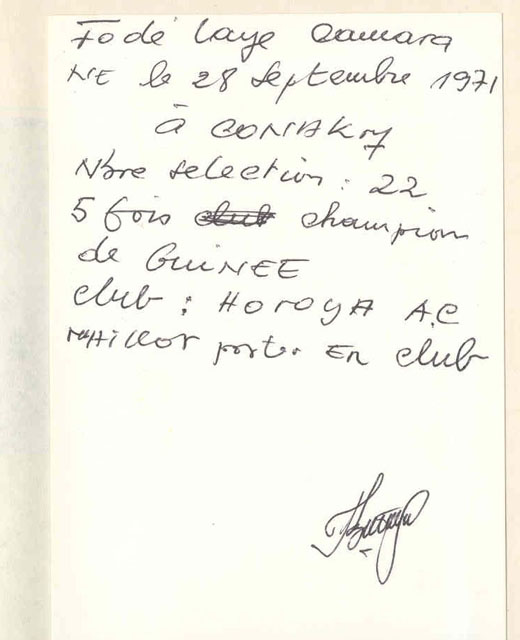 Fodé Laye Camara
NE le 28 Septembre 1971
à CONAKRY
Nbre selection : 22
5 fois champion
de GUINEE
club : HOROYA A.C
MAILLOT porter EN club